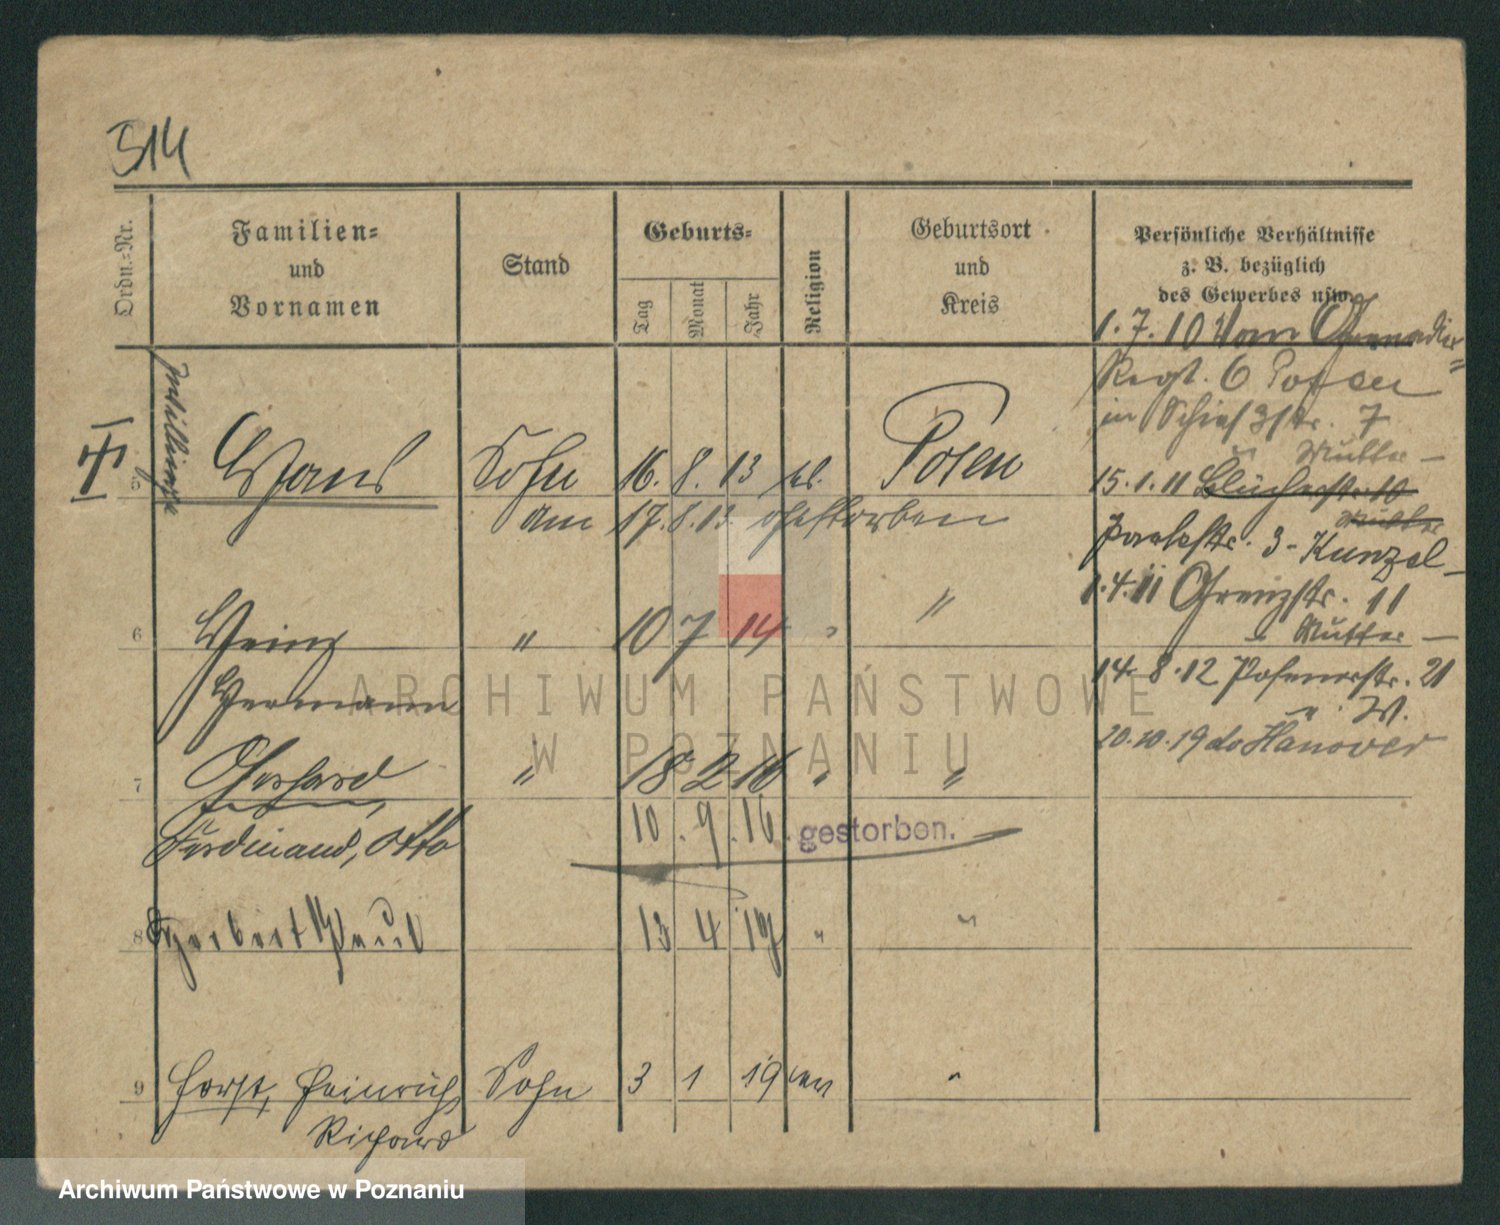 514
Ordn.=Nr.
Familien=
und
Vornamen
Stand
Geburts=
Tag
Monat
Jahr
Religion
Geburtsort
und
Kreis
Persönliche Verhältnisse
z. B. bezüglich
des Gewerbes usw.
1.7.10 Vom Grenadier=
Regt. 6 Posen
in 7
Mutter –
5 Hans Sohn 16. 8. 13 Posen
15.1.11 Blücherstr. 10
am 17.8.13 gestorben
Mutter
3 - Kunzel –
1.4.11 Grenzstr. 11
6 Heinz " 10 7 14 " "
Mutter –
Hermann
14.8.12 Posenerstr. 21
W.
20.10.19 Hanover
7 Gerhard " 18 2 16 " "
Ferdinand, Otto
10. 9. 16. gestorben.
8 Herbert Paul 13 4 17 " "
9 Horst, Heinrich Sohn 3 1 19 ev "
Richard
ARCHIWUM PAŃSTWOWE
W POZNANIU
Archiwum Państwowe w Poznaniu